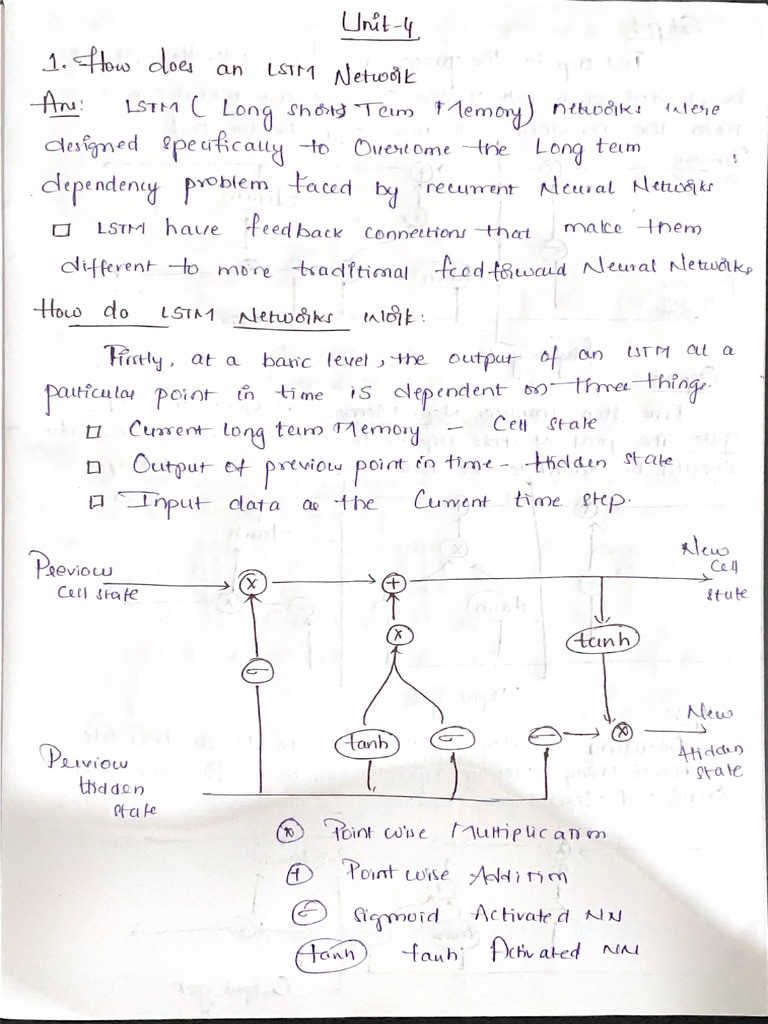 Unit-4
1. How does an LSTM Network
Ans: LSTM (Long short Term Memory) networks were
designed specifically to Overcome the Long term
dependency problem faced by recurrent Neural Networks
LSTM have feedback connections that make them
different to more traditional feedforward Neural Networks
How do LSTM Networks Work:
Firstly, at a basic level, the output of an LSTM at a
particular point in time is dependent on three things.
Current Long term Memory - Cell State
Output of previous point in time - Hidden state
Input data as the Current time step.
Previous
Cell state
x
+
New
Cell
state
x
tanh
σ
tanh
σ
σ
x
New
Hidden
state
Previous
Hidden
state
x Point wise Multiplication
+ Point wise Addition
σ sigmoid Activated NN
tanh tanh Activated NN